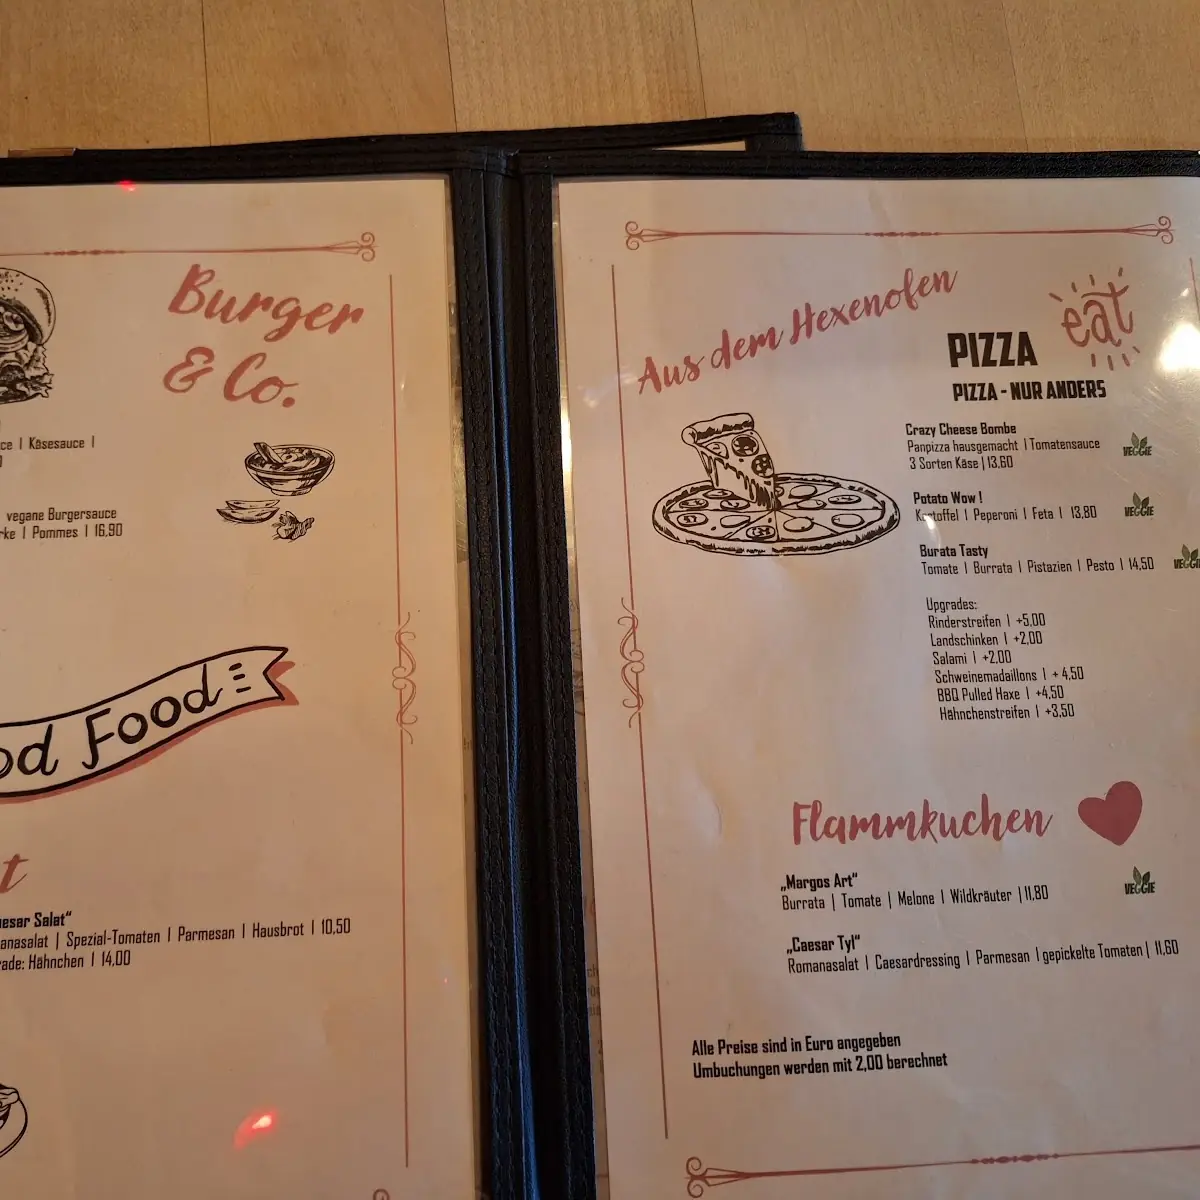 Burger
& Co.
Käsesauce |
vegane Burgersauce
Pommes | 16,90
Food
„Caesar Salat“
| Spezial-Tomaten | Parmesan | Hausbrot | 10,50
Hähnchen | 14,00
Aus dem Hexenofen
eat
PIZZA
PIZZA - NUR ANDERS
Crazy Cheese Bombe
Panpizza hausgemacht | Tomatensauce
3 Sorten Käse | 13,60
VEGGIE
Potato Wow !
Kartoffel | Peperoni | Feta | 13,80
VEGGIE
Burata Tasty
Tomate | Burrata | Pistazien | Pesto | 14,50
VEGGIE
Upgrades:
Rinderstreifen | +5,00
Landschinken | +2,00
Salami | +2,00
Schweinemadaillons | + 4,50
BBQ Pulled Haxe | +4,50
Hähnchenstreifen | +3,50
Flammkuchen
„Margos Art“
Burrata | Tomate | Melone | Wildkräuter | 11,80
VEGGIE
„Caesar Tyl“
Romanasalat | Caesardressing | Parmesan | gepickelte Tomaten | 11,60
Alle Preise sind in Euro angegeben
Umbuchungen werden mit 2,00 berechnet